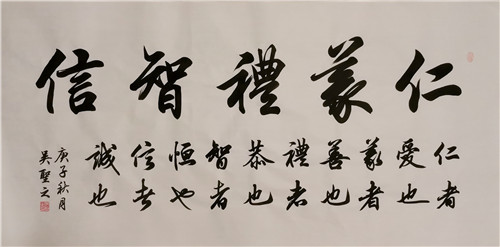 仁義禮智信
仁者
愛也
義者
善也
禮者
恭也
智者
恒也
信者
誠也
庚子秋月
吴聖之